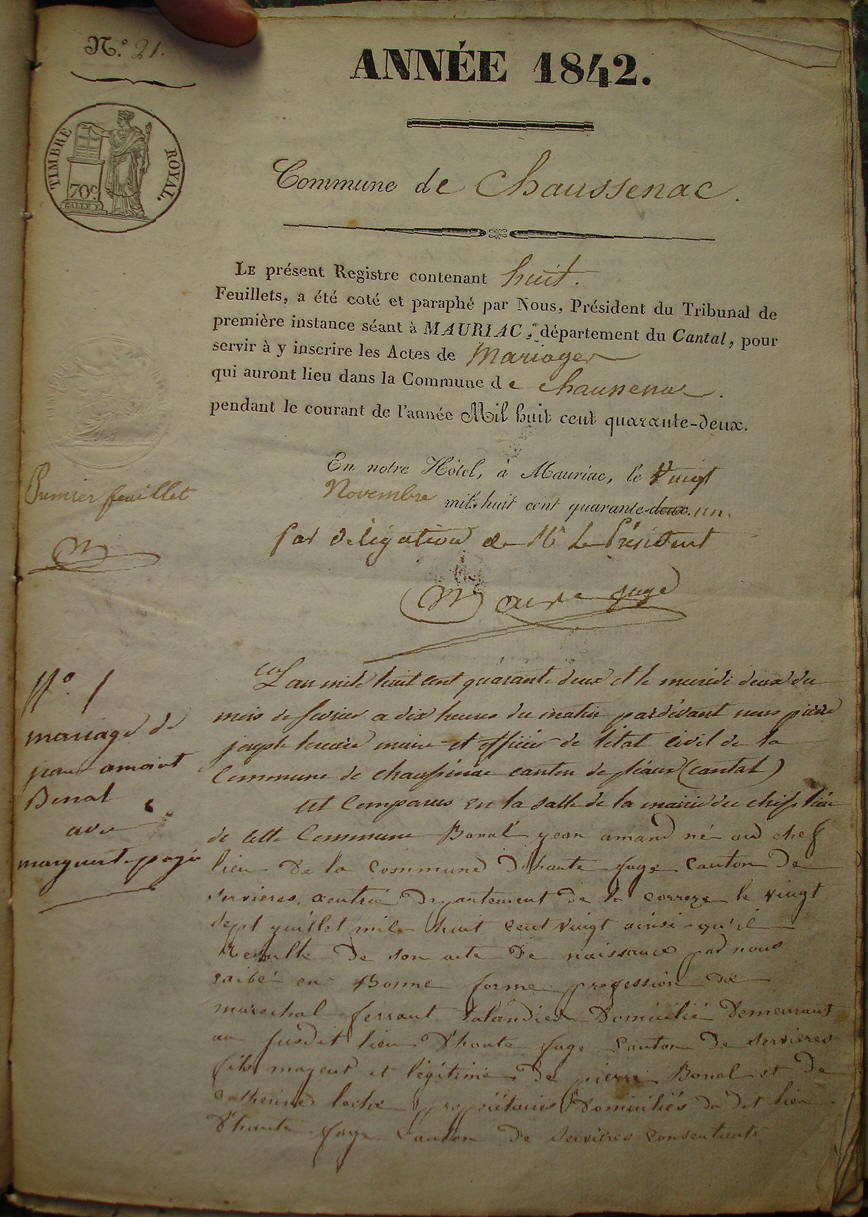 N.º 21.
ANNÉE 1842.
TIMBRE ROYAL.
70c
Commune de Chaussenac.
LE présent Registre contenant huit.
Feuillets, a été coté et paraphé par Nous, Président du Tribunal de
première instance séant à MAURIAC, département du Cantal, pour
servir à y inscrire les Actes de Mariages
qui auront lieu dans la Commune de Chaussenac.
pendant le courant de l'année Mil huit cent quarante-deux.
En notre Hôtel, à Mauriac, le Vingt
Novembre mil huit cent quarante-deux un.
Premier feuillet
par délégation de Mr Le Président
juge
Nº 1
mariage de
jean amant
Bonal
avec
marguerite
L'an mile huit cent quarante deux et le mercredi deux du
mois de fevrier a dix heures du matin pardevant nous pierre
joseph maire et officier de l'état civil de la
Commune de chaussenac canton de pleaux (cantal)
est Comparus en la salle de la mairie du chef lieu
de cette Commune Bonal jean amand né au chef
lieu De la commune D'haute fage Canton De
servieres, departement De la correze le vingt
sept juillet mile huit cent vingt ainsi qu'il
Resulte De son acte De naissance par nous
en Bonne forme profession De
marechal ferrant Domicilié Demeurant
au susdit lieu D'haute fage Canton De servieres
fils majeur et légitime De pierre Bonal et De
catherine propriétaires Domiciliés du dit lieu
D'haute fage Canton De servieres consentants